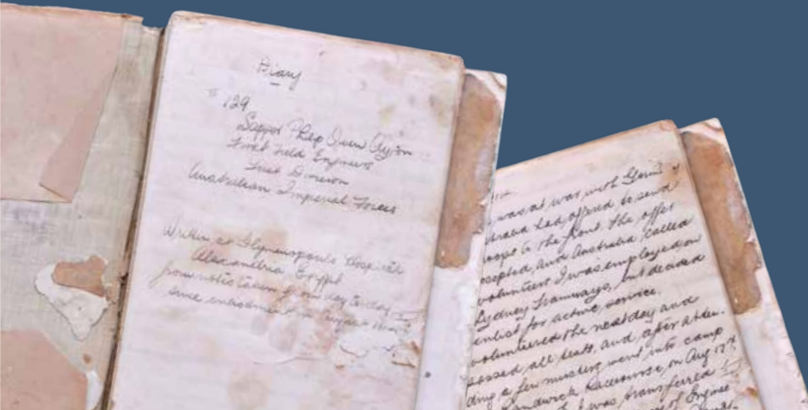 Diary
# 129
Sapper Philip Owen Ayton
First Field Engineers
First Division
Australian Imperial Forces
Written at Hospital
Alexandria Egypt
from notes taken from day to day
since embarkment in August
was at war with
had offered to send
troops to the front. The offer
accepted, and Australia called
volunteers I was employed on
Sydney Tramways, but decided
enlist for active service.
volunteered the next day and
passed all tests, and after
a few musters went into camp
Randwick Racecourse, on Aug 17th
I was transferred
of